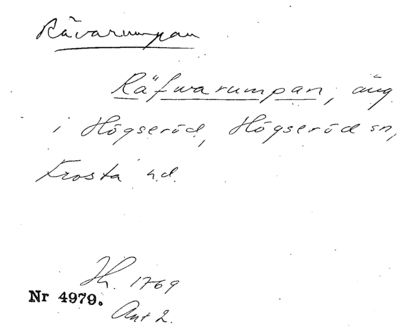 Rävarumpan
Räfwarumpan, äng
i Högseröd, Högseröd sn,
Frosta hd.
Sk. 1769
Nr 4979.
Akt 2.